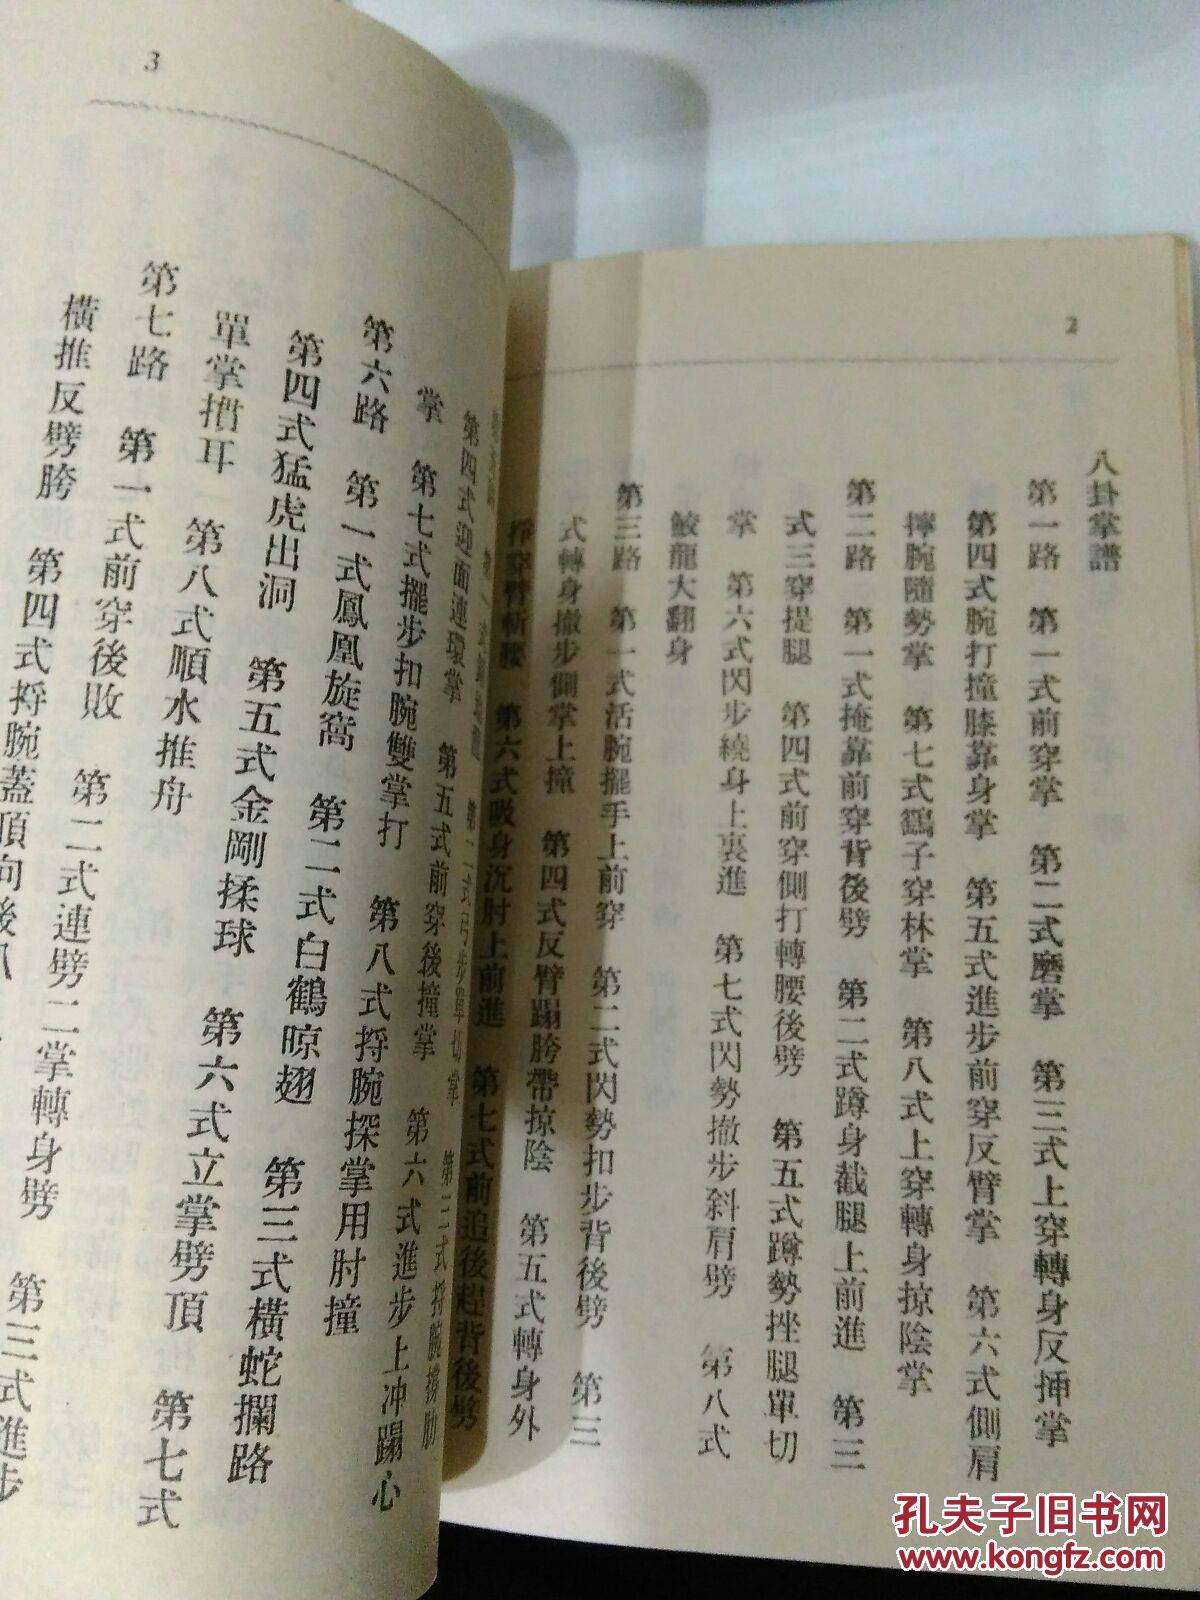 2
八卦掌譜
第一路　第一式前穿掌　第二式磨掌　第三式上穿轉身反揷掌
第四式腕打撞膝靠身掌　第五式進步前穿反臂掌　第六式側肩
擰腕隨勢掌　第七式鷂子穿林掌　第八式上穿轉身掠陰掌
第二路　第一式掩靠前穿背後劈　第二式蹲身截腿上前進　第三
式三穿提腿　第四式前穿側打轉腰後劈　第五式蹲勢挫腿單切
掌　第六式閃步繞身上裏進　第七式閃勢撤步斜肩劈　第八式
鮫龍大翻身
第三路　第一式活腕擺手上前穿　第二式閃勢扣步背後劈　第三
式轉身撤步側掌上撞　第四式反臂蹋胯帶掠陰　第五式轉身外
穿臂斬腰　第六式吸身沉肘上前進　第七式前追後趕背後劈
3
第二式 第三式捋腕撩肋
第四式迎面連環掌　第五式前穿後撞掌　第六式進步上冲蹋心
掌　第七式擺步扣腕雙掌打　第八式捋腕探掌用肘撞
第六路　第一式鳳凰旋窩　第二式白鶴晾翅　第三式橫蛇攔路
第四式猛虎出洞　第五式金剛揉球　第六式立掌劈頂　第七式
單掌摜耳　第八式順水推舟
第七路　第一式前穿後敗　第二式連劈二掌轉身劈　第三式進步
橫推反劈胯　第四式捋腕蓋頂向後
孔夫子旧书网
www.kongfz.com